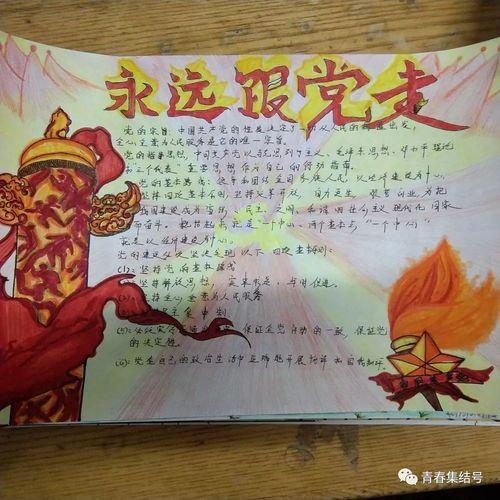 永远跟党走
党的宗旨：中国共产党的性质决定了一切从人民的利益出发，
全心全意为人民服务是它的唯一宗旨。
党的指导思想，中国共产党以马克思列宁主义、毛泽东思想、邓小平理论
和"三个代表"重要思想作为自己的行动指南。
党的基本路线：领导和团结全国各族人民，以经济建设为中心，
坚持四项基本原则，坚持改革开放，自力更生，艰苦创业，为把
我国建设成为富强、民主、文明、和谐的社会主义现代化国家
而奋斗。概括起来就是"一个中心，两个基本点"，"一个中心"
就是以经济建设为中心。
党的建设必须坚决实现以下四项基本原则：
(1)：坚持党的基本路线
坚持解放思想，实事求是，与时俱进。
坚持全心全意为人民服务
坚持民主集中制
(5)：保证全党行动的一致，保证党
的决定性。
(6)：党在自己的政治生活中正确地开展批评和自我批评。
青春集结号